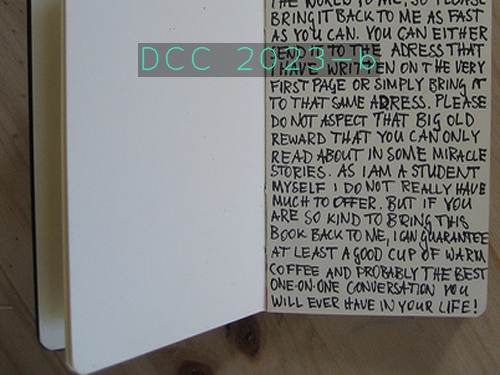 THE WORLD TO ME, SO PLEASE
BRING IT BACK TO ME AS FAST
AS YOU CAN. YOU CAN EITHER
DCC 2023-6
SEND IT TO THE ADRESS THAT
I HAVE WRITTEN ON THE VERY
FIRST PAGE OR SIMPLY BRING IT
TO THAT SAME ADRESS. PLEASE
DO NOT ASPECT THAT BIG OLD
REWARD THAT YOU CAN ONLY
READ ABOUT IN SOME MIRACLE
STORIES. AS I AM A STUDENT
MYSELF I DO NOT REALLY HAVE
MUCH TO OFFER. BUT IF YOU
ARE SO KIND TO BRING THIS
BOOK BACK TO ME, I CAN GUARANTEE
AT LEAST A GOOD CUP OF WARM
COFFEE AND PROBABLY THE BEST
ONE-ON-ONE CONVERSATION YOU
WILL EVER HAVE IN YOUR LIFE!